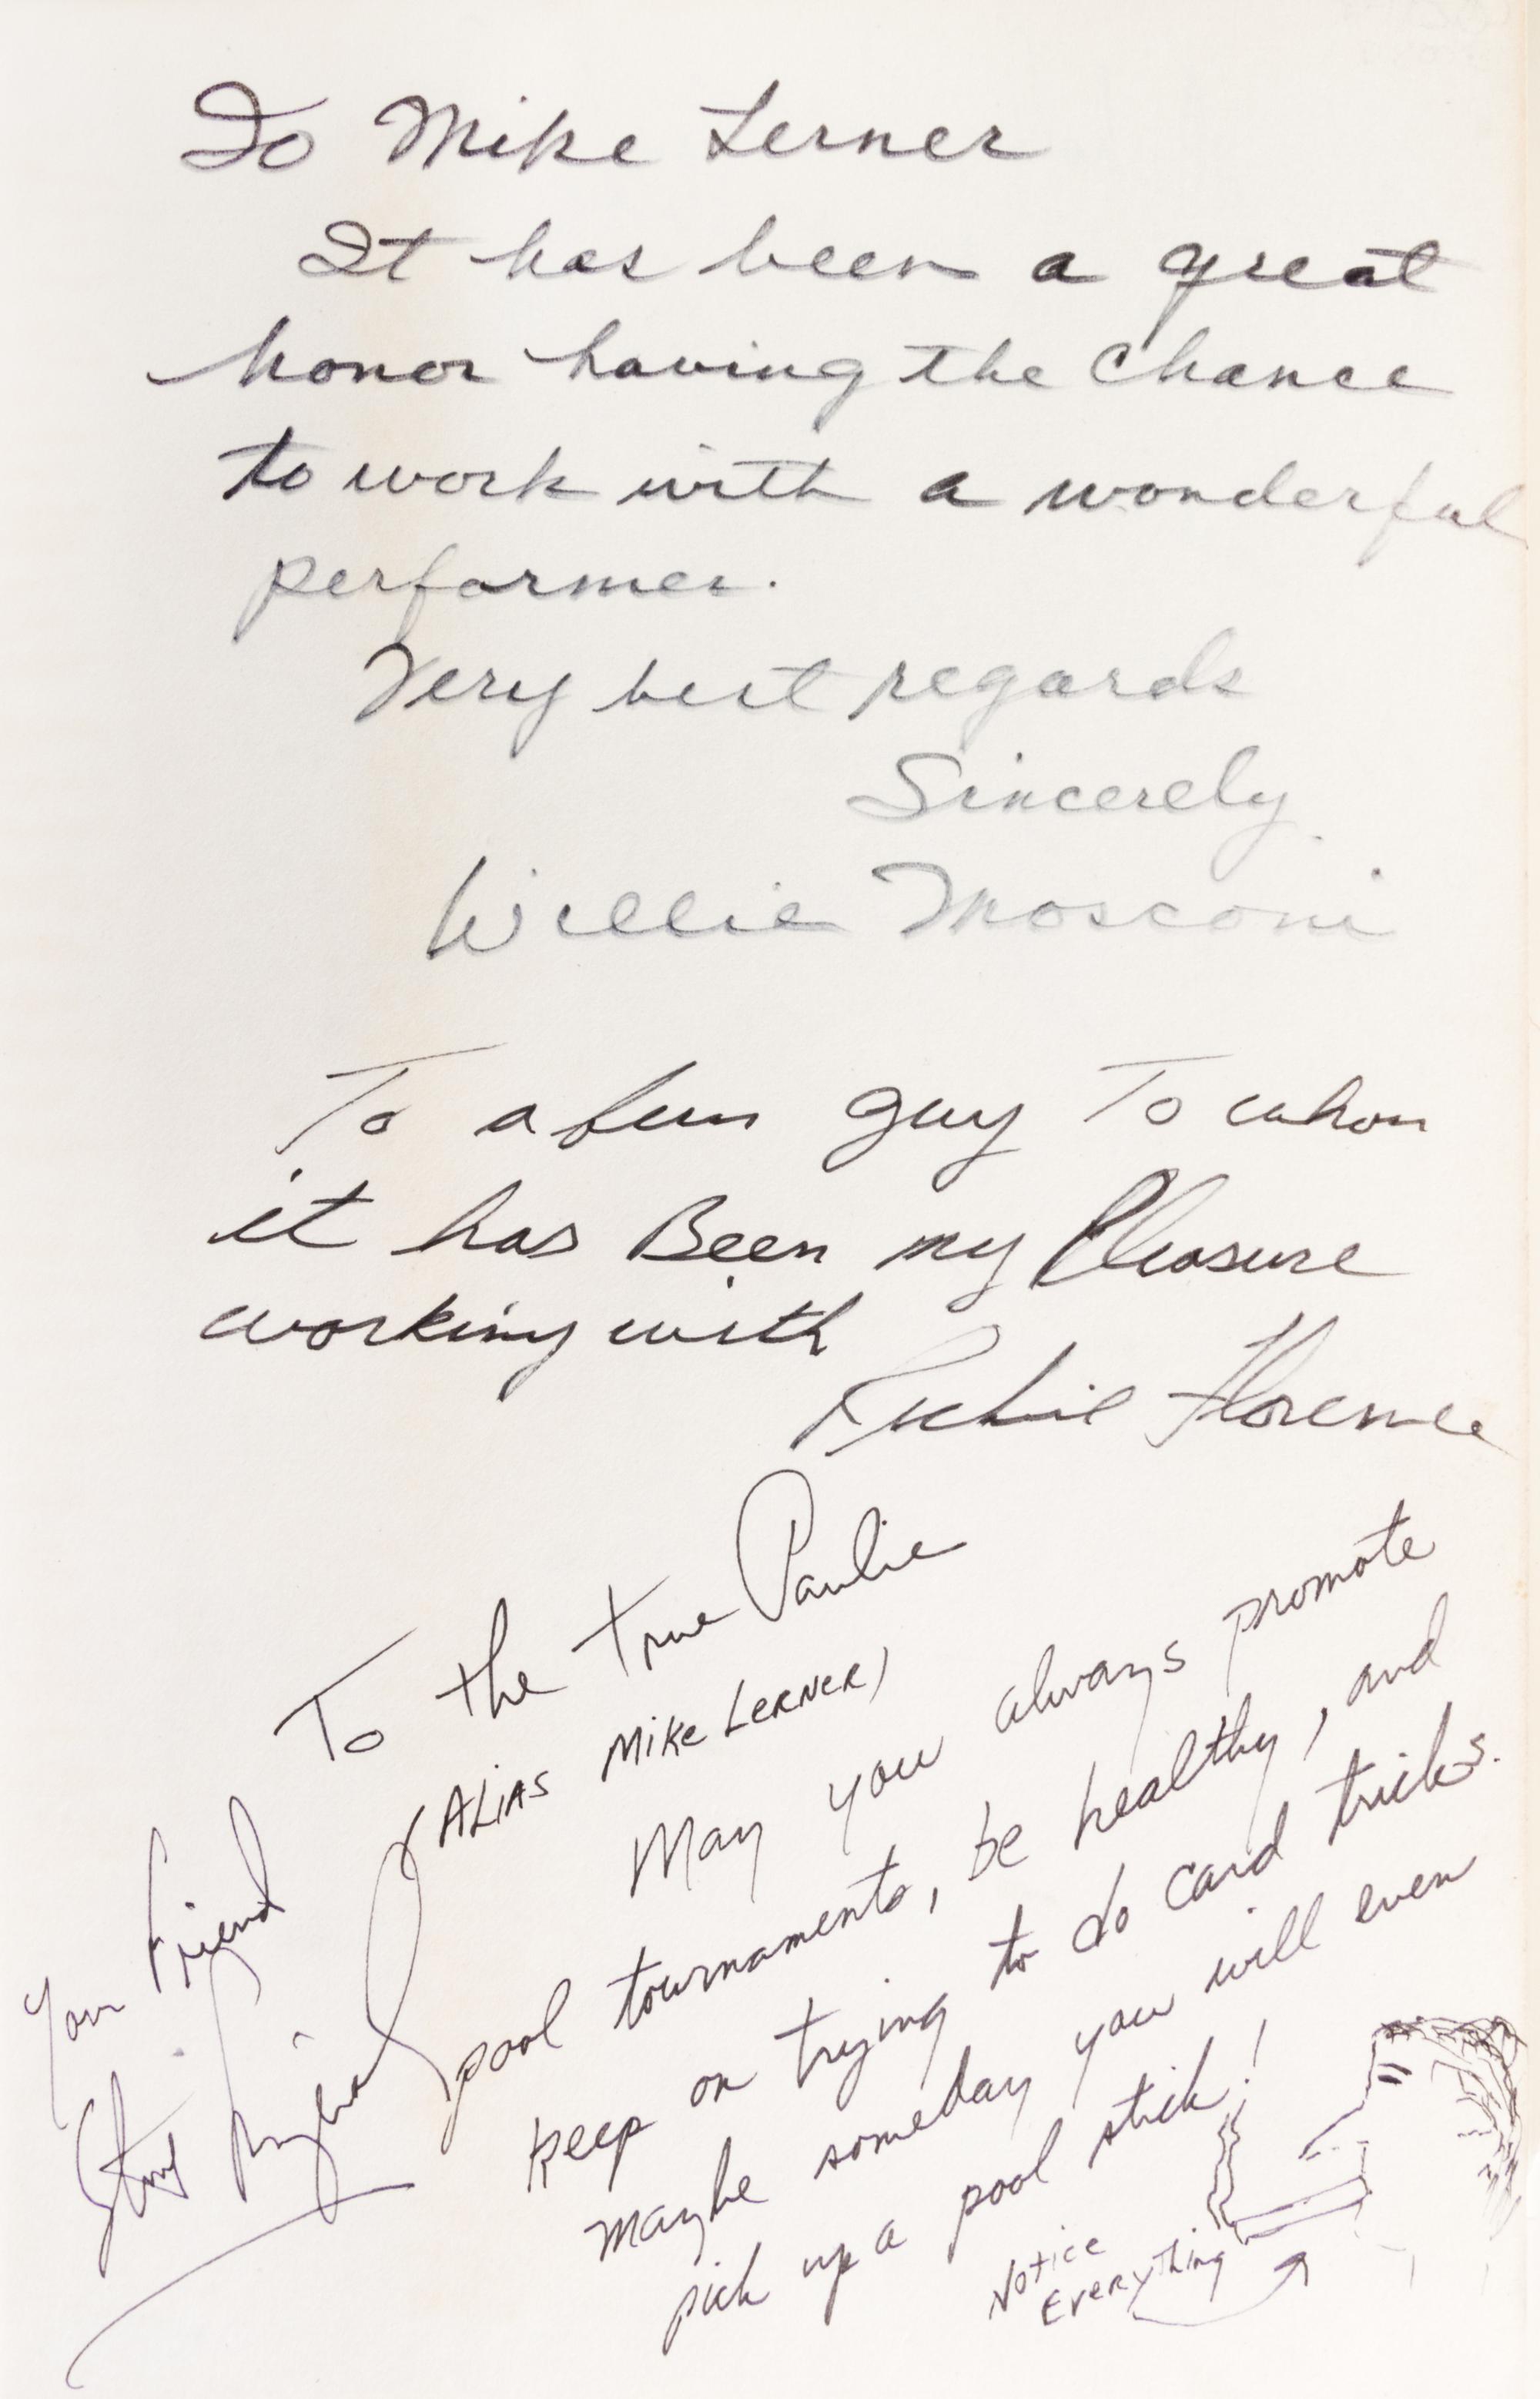 To Mike Lerner
It has been a great
honor having the Chance
to work with a wonderful
performer.
Very best regards
Sincerely
Willie Mosconi
To a fun guy To whom
it has Been my Pleasure
working with
Richie Florence
To the true Paulie
(ALIAS Mike LERNER)
May you always promote
pool tournaments, be healthy, and
keep on trying to do card tricks.
Maybe someday you will even
pick up a pool stick!
Notice
Everything
Your Friend